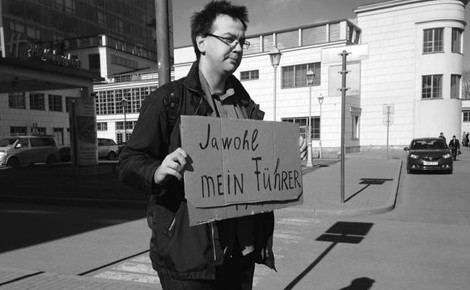 Jawohl
MEIN FÜHRER